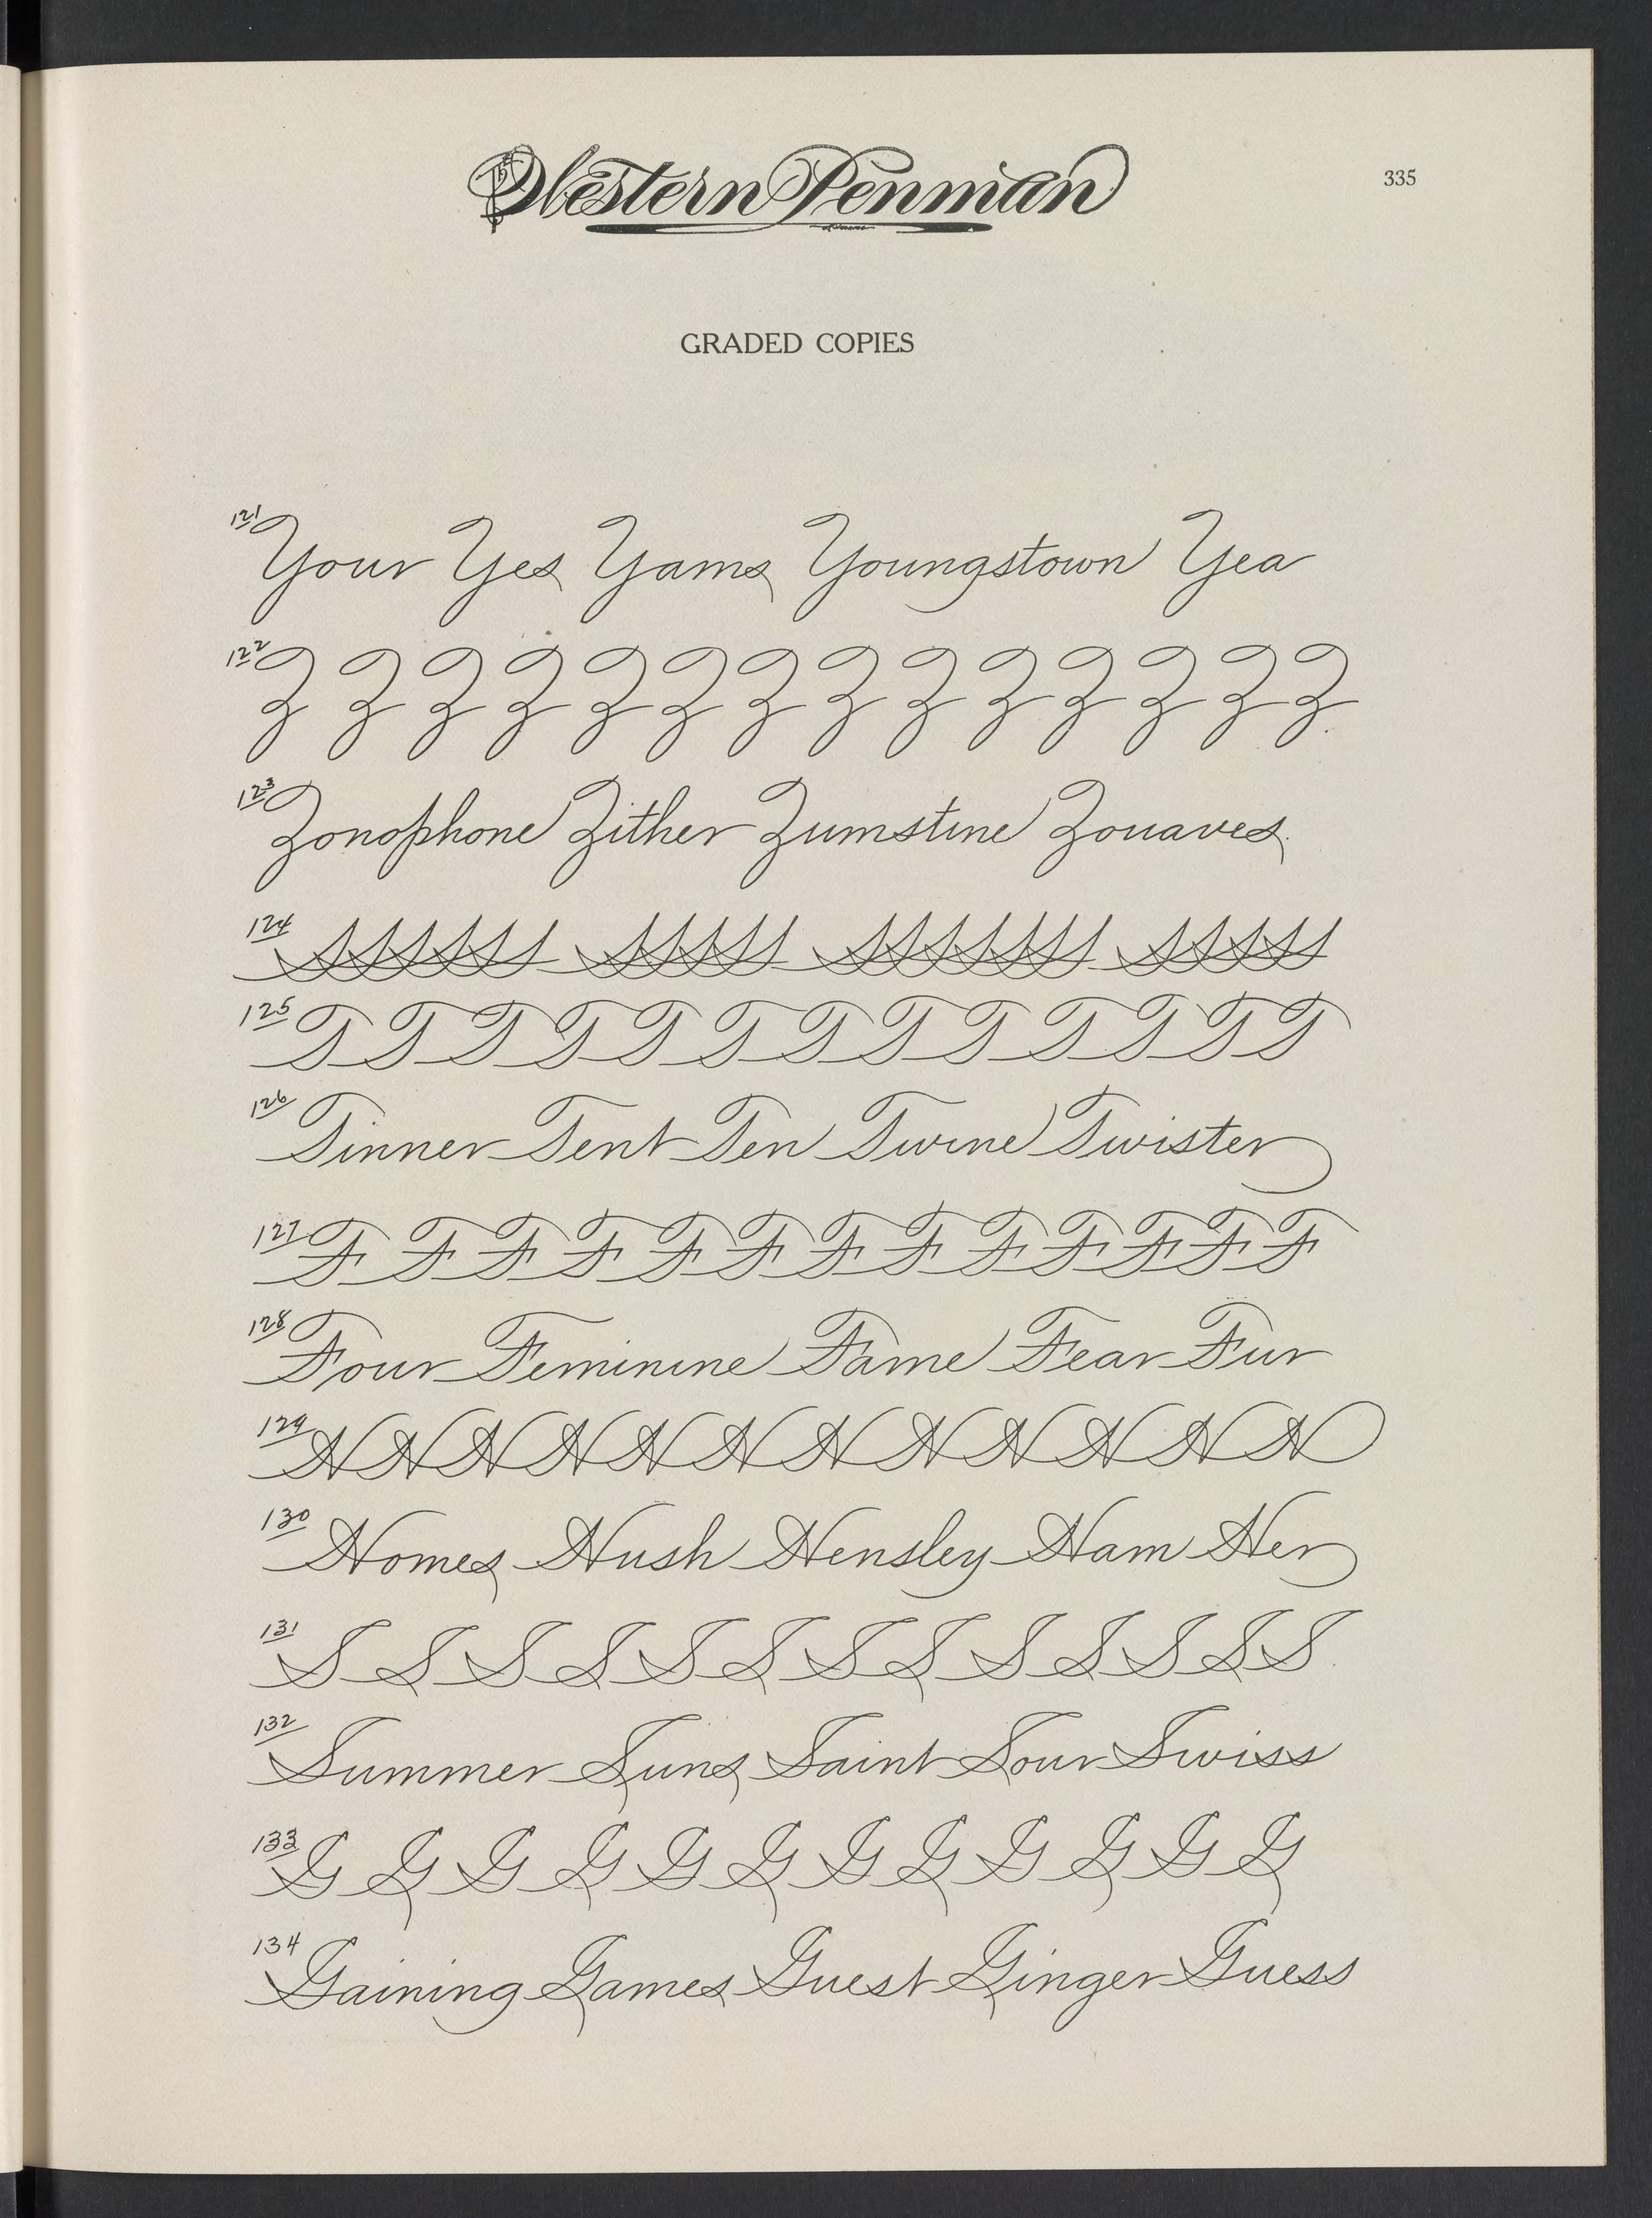 The Western Penman
335
GRADED COPIES
121 Your Yes Yams Youngstown Yea
122 Z Z Z Z Z Z Z Z Z Z Z Z Z Z
123 Zonophone Zither Zumstine Zouaves
124
125 T T T T T T T T T T T T T
126 Tinner Tent Ten Twine Twister
127 F F F F F F F F F F F F F
128 Four Feminine Fame Fear Fur
129 H H H H H H H H H H H H
130 Homes Hush Hensley Ham Her
131 S S S S S S S S S S S S S
132 Summer Suns Saint Sour Swiss
133 G G G G G G G G G G G G
134 Gaining Games Guest Ginger Guess